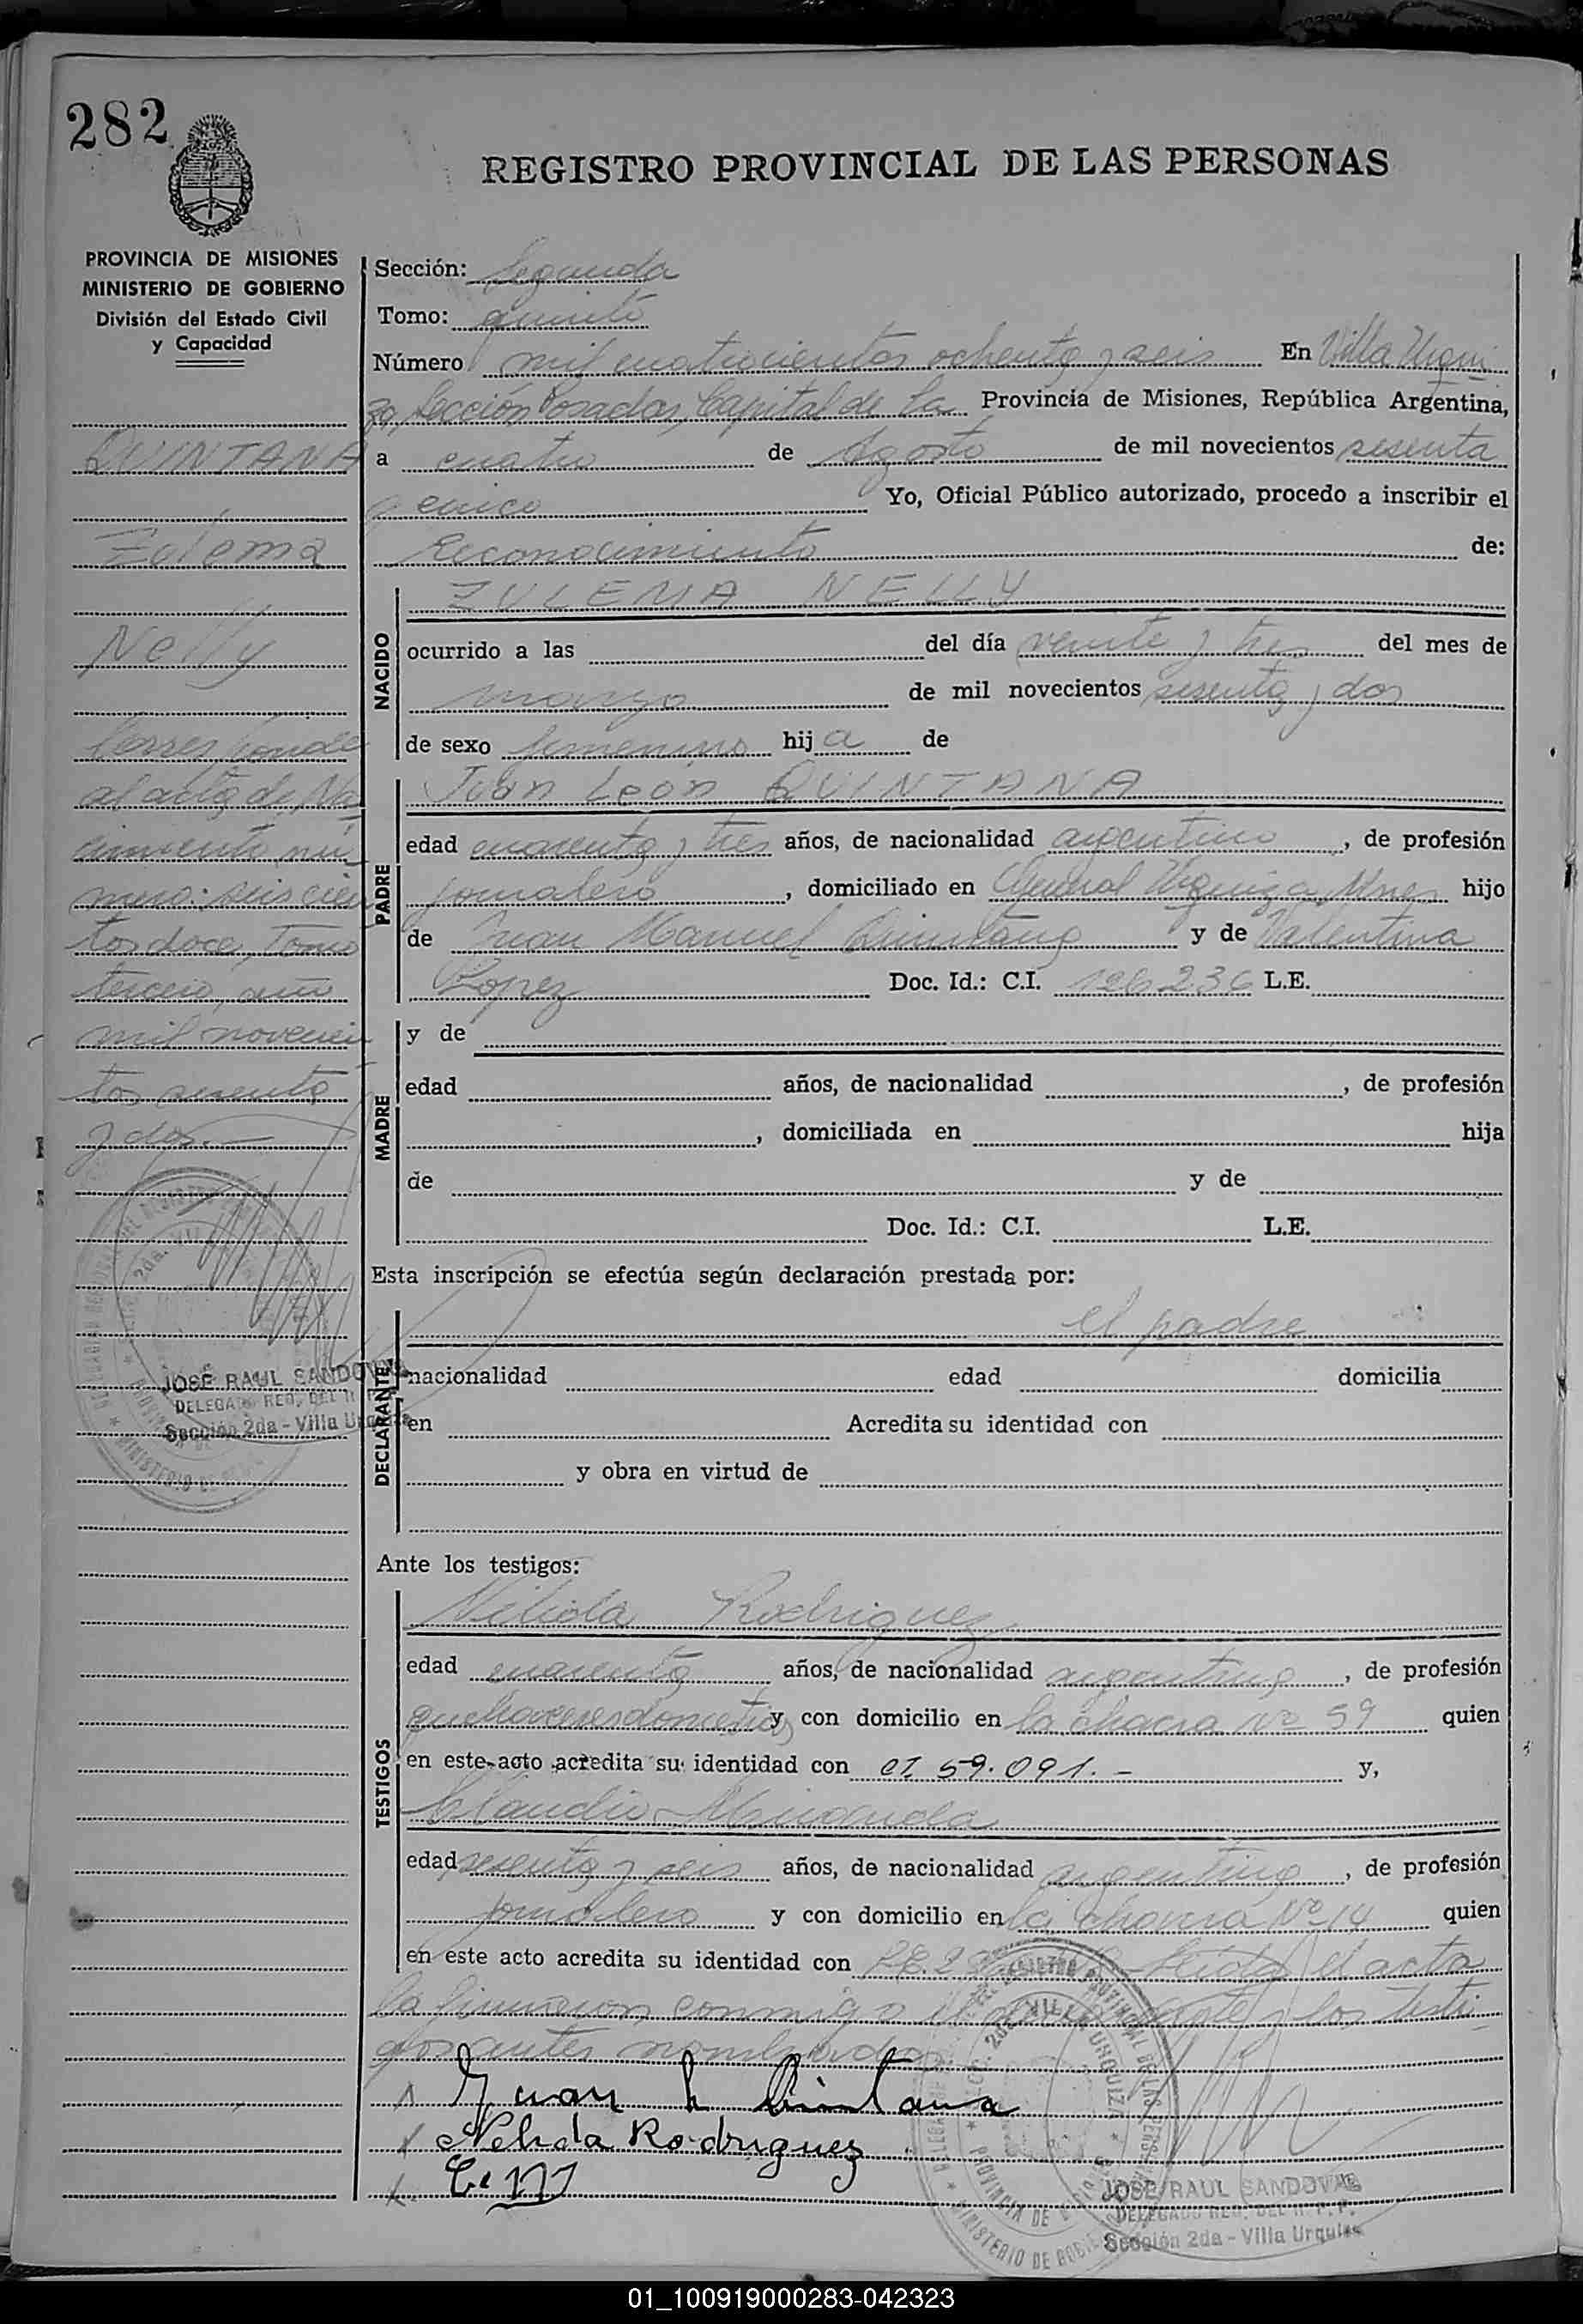 282
REGISTRO PROVINCIAL DE LAS PERSONAS
PROVINCIA DE MISIONES
MINISTERIO DE GOBIERNO
División del Estado Civil
y Capacidad
QUINTANA
Zulema
Nelly
Corresponde
al acta de Na
cimiento nú
mero: seiscien
tos doce, Tomo
tercero, año
mil novecien
tos sesenta
y dos.—
JOSÉ RAUL SANDOVAL
DELEGADO REG. DEL R
Sección 2da - Villa Urquiza
Sección: Segunda
Tomo: quinto
Número mil cuatrocientos ochenta y seis En Villa Urqui
za, Sección Posadas, Capital de la Provincia de Misiones, República Argentina,
a cuatro de Agosto de mil novecientos sesenta
y cinco Yo, Oficial Público autorizado, procedo a inscribir el
Reconocimiento de:
NACIDO
ZULEMA NELLY
ocurrido a las del día veinte y tres del mes de
marzo de mil novecientos sesenta y dos
de sexo femenino hija de
PADRE
Juan León QUINTANA
edad cuarenta y tres años, de nacionalidad argentino, de profesión
jornalero, domiciliado en General Urquiza, Mnes hijo
de Juan Manuel Quintana y de Valentina
Lopez Doc. Id.: C.I. 126.236 L.E.
MADRE
y de
edad años, de nacionalidad , de profesión
, domiciliada en hija
de y de
Doc. Id.: C.I. L.E.
Esta inscripción se efectúa según declaración prestada por:
DECLARANTE
el padre
nacionalidad edad domicilia
en Acredita su identidad con
y obra en virtud de
Ante los testigos:
TESTIGOS
Nélida Rodriguez
edad cuarenta años, de nacionalidad argentina, de profesión
quehaceres domesticos y con domicilio en la chacra Nº 59 quien
en este acto acredita su identidad con CI 59.091.- y,
Claudio
edad sesenta y seis años, de nacionalidad argentino, de profesión
jornalero y con domicilio en la chacra Nº 14 quien
en este acto acredita su identidad con Leida el acta
la firmaron conmigo el y los testi
gos antes nombrados
Juan L Quintana
Nelida Rodriguez
JOSE RAUL SANDOVAL
DELEGADO REG. DEL R. P. P.
Sección 2da - Villa Urquiza
01_100919000283-042323